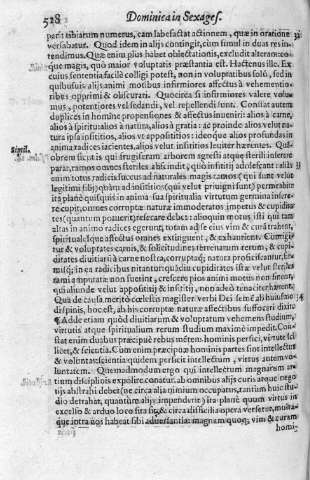 528 Dominica in Sexages.
perit tibiarum numerus, eam labefactat actionem, quæ in oratione
versabatur. Quod idem in alijs contingit, cùm simul in duas res in-
tendimus. Quæ enim plus habet oblectationis, excludit alteram: eo-
que magis, quò maior voluptatis præstantia est. Hactenus ille. Ex
cuius sententia facilè colligi potest, non in voluptatibus solũ, sed in
quibusuis alijs animi motibus infirmiores affectus à vehementio-
ribus opprimi & obscurari. Quocirca si infirmiores valere volu-
mus, potentiores vel sedandi, vel repellendi sunt. Constat autem
duplices in homine propensiones & affectus inueniri: alios à carne,
alios à spiritu: alios à natura, alios à gratia: ac proinde alios velut na-
tura ipsa insititios, alios vt appositítios: ideoque alios profundas in
anima radices iacientes, alios velut insititios leuiter hærentes. Qui-
Simil. obrem sicut is qui frugiferam arborem agresti atque sterili inserere
parat, ramos omnes steriles abscindit, quò insititij adolescant: 33
enim totus radicis succus ad naturales magis ramos (qui sunt velut
legitimi filij) quàm ad insititios (qui velut priuigni sunt) permeabit:
ita planè quisquis in anima sua spiritualia virtutum germina insere-
re cupit, omnes corruptæ naturæ immoderatos impetus & cupidita-
tes (quantum poterit) resecare debet: alioquin motus isti qui tam
altas in animo radices egerunt, totam ad se eius vim & curã trahent,
spiritualesque affectus omnes extinguent, & exhaurient.
tur & voluptates carnis, & sollicitudines terrenarum rerum, & cupi-
ditates diuitiarũ à carne nostra, corruptaq; natura proficiscantur,
misq; in ea radicibus nitantur: quãdiu cupiditates istæ velut steriles
rami amputatæ non fuerint, crescere pios animi motus non sinent,
qui aliunde velut appositítij & insititij, non adeò tenaciter hærent.
Qua de causa meritò cœlestis magister verbi Dei semẽ ab huiusmodi 34
dispinis, hoc est, ab his corruptæ naturæ affectibus suffocari dixit.
¶ Adde etiam quòd diuitiarum & voluptatum vehemens studium,
virtutis atque spiritualium rerum studium maximè impedit. Con-
stat enim duabus præcipuè rebus mẽtem hominis perfici, virtute sci-
licet, & scientia. Cùm enim præcipuæ hominis partes sint intellectus
& voluntas: scientia quidem perficit intellectum, virtus autem vo-
luntatem. Quemadmodum ergo qui intellectum magnarum ar-
tium disciplinis expolire conatur, ab omnibus alijs curis atque nego-
tijs abstrahi debet (ne circa alia animum occupatus, tantum huic stu-
dio detrahat, quantum alijs impenderit) ita planè quum virtus in
excelso & arduo loco sita sit, & circa difficilia opera versetur, multa-
que intra nos habeat sibi aduersantia: magnam quoq; vim & curam
homi-